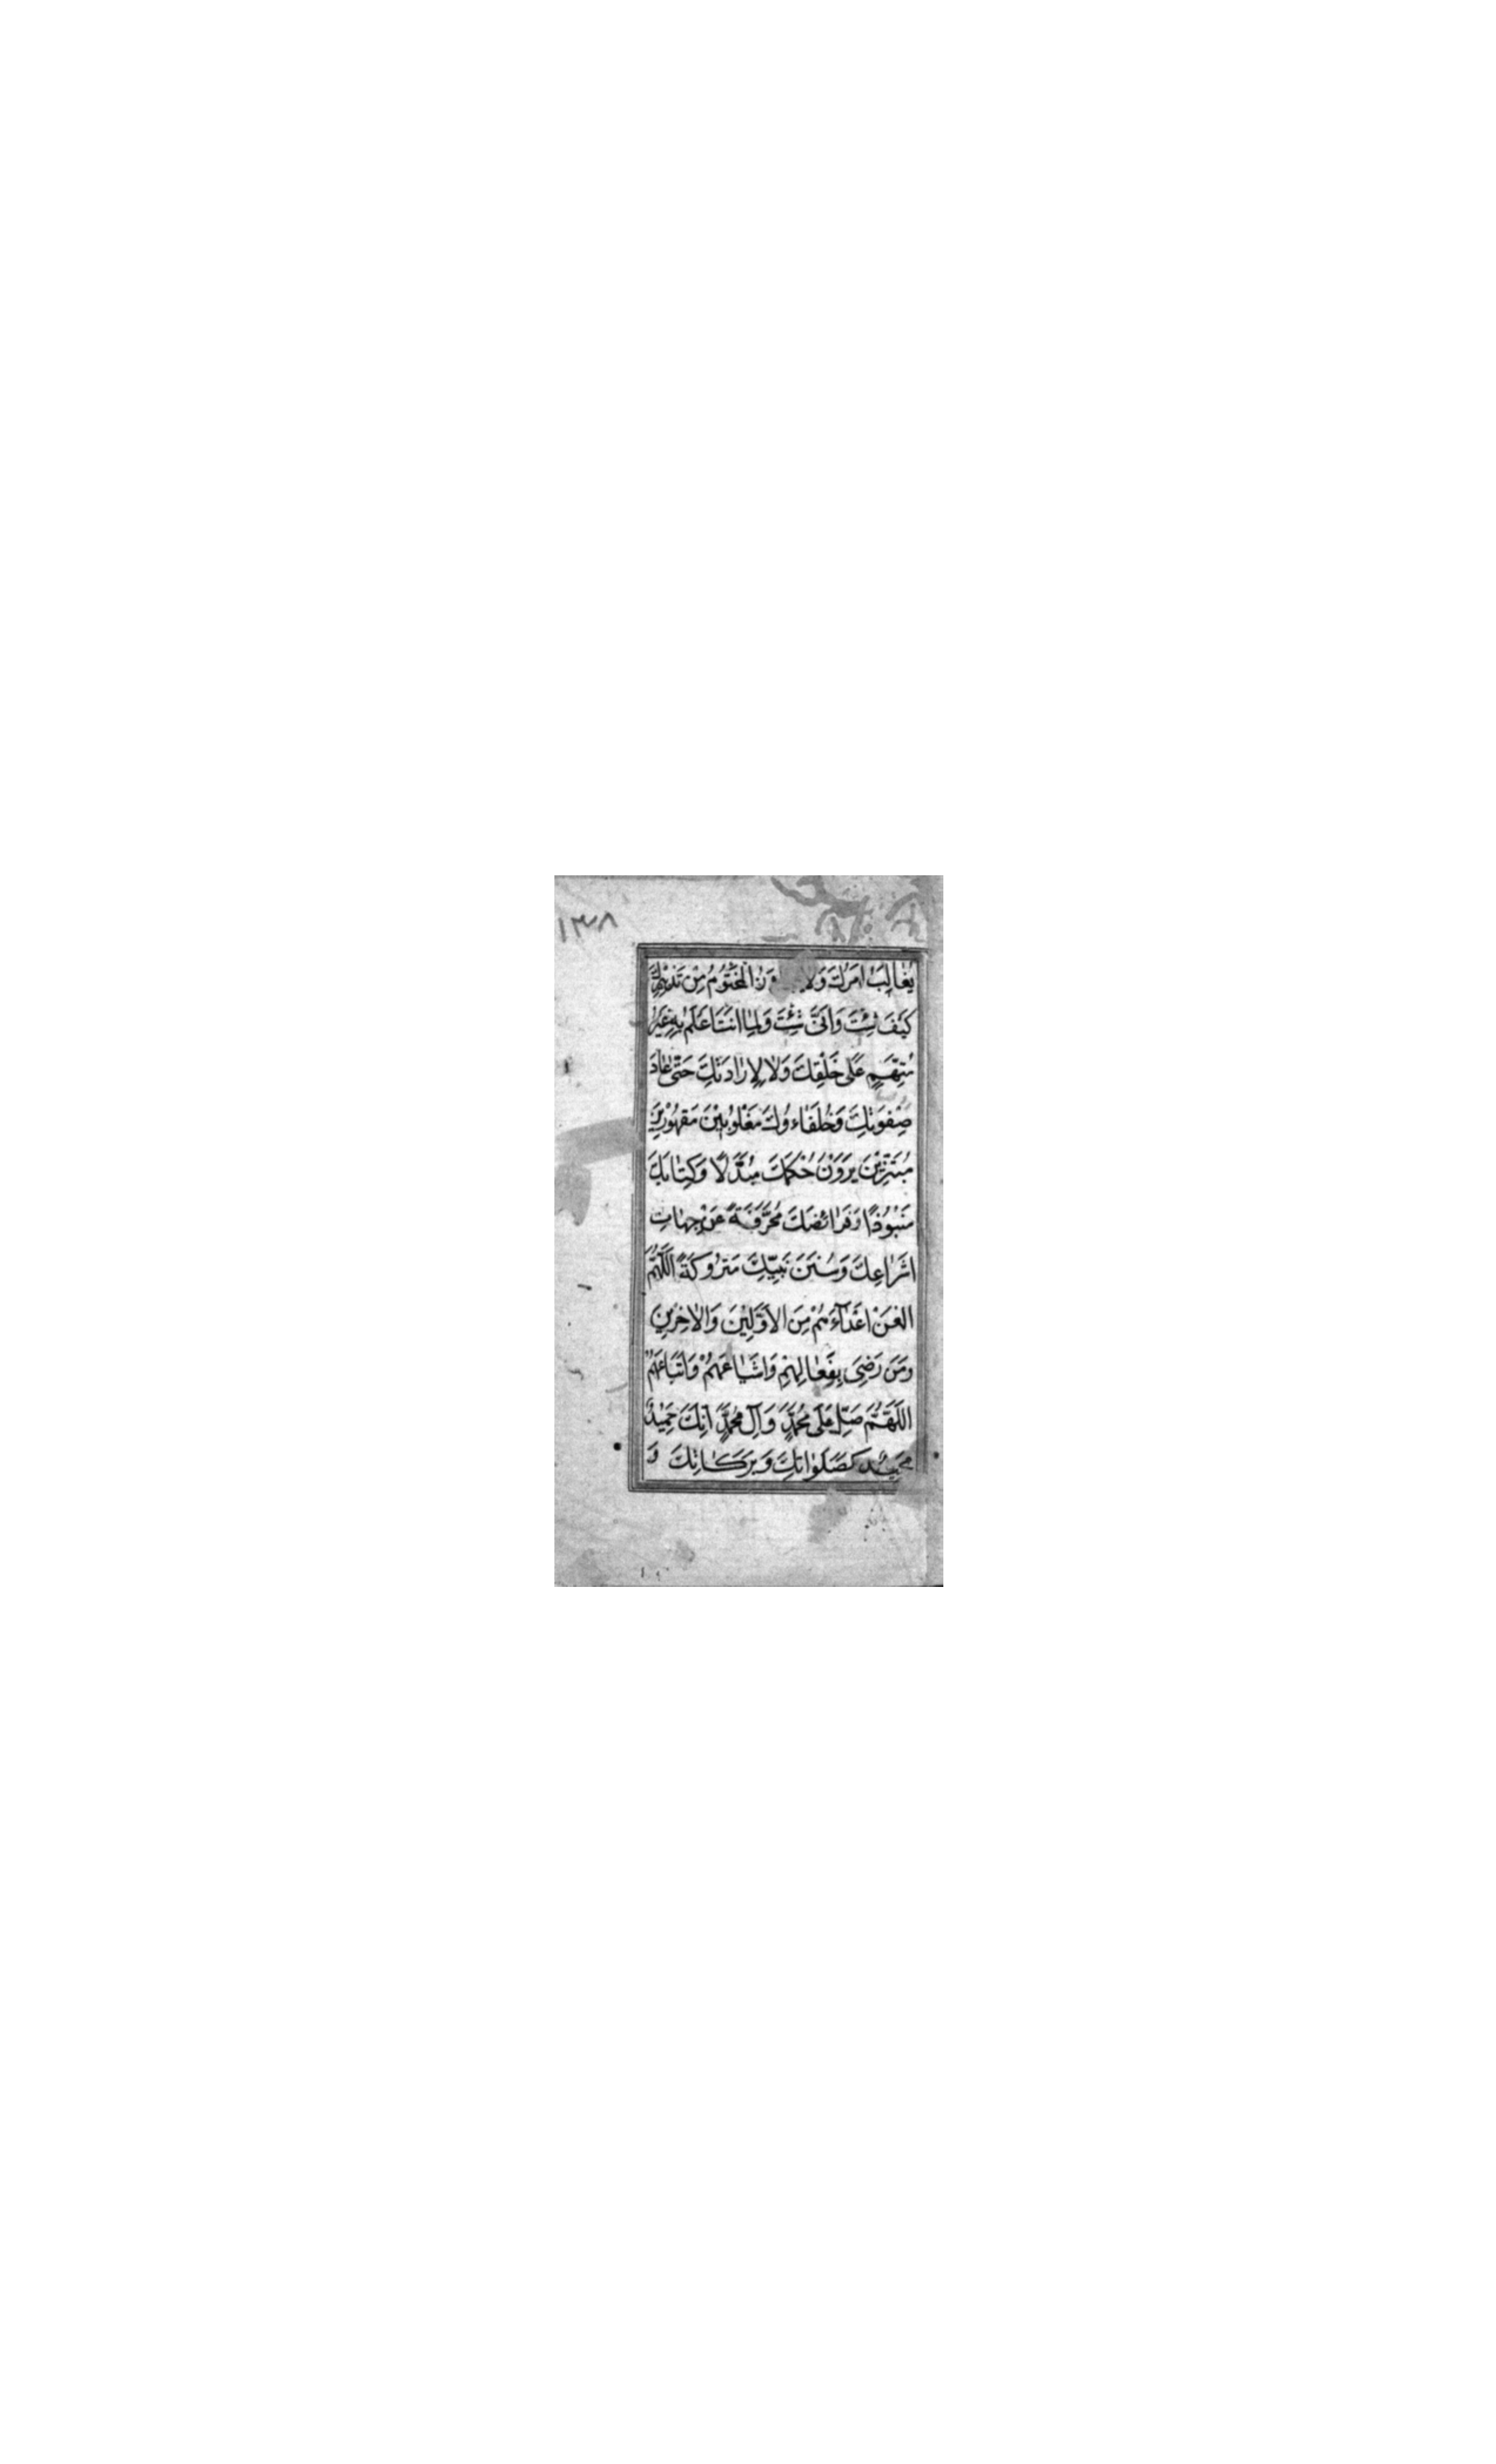 ١٣٨
يُغالِبُ اَمْرُكَ وَلا وَزُ الْمَحْتُومُ مِنْ تَدْبيرِكَ
كَيْفَ شِئْتَ وَاَنّى شِئْتَ وَلِما اَنْتَ اَعْلَمُ بِهِ غَيْرُ
مُتَّهَمٍ عَلى خَلْقِكَ وَلا لِاِرادَتِكَ حَتّى عادَ
صِفْوَتُكَ وَخُلَفاءُكَ مَغْلُوبينَ مَقْهُورينَ
مُبْتَزّينَ يَرَوْنَ حُكْمَكَ مُبَدَّلًا وَكِتابَكَ
مَنْبُوذًا وَفَرائِضَكَ مُحَرَّفَةً عَنْ جِهاتِ
اَشْراعِكَ وَسُنَنَ نَبِيِّكَ مَتْرُوكَةً اَللّهُمَّ
الْعَنْ اَعْداءَهُمْ مِنَ الْاَوَّلينَ وَالْاخِرينَ
وَمَنْ رَضِىَ بِفِعالِهِمْ وَاَشْياعَهُمْ وَاَتْباعَهُمْ
اَللّهُمَّ صَلِّ عَلى مُحَمَّدٍ وَآلِ مُحَمَّدٍ اِنَّكَ حَميدٌ
مَجيدٌ كَصَلَواتِكَ وَبَرَكاتِكَ وَ